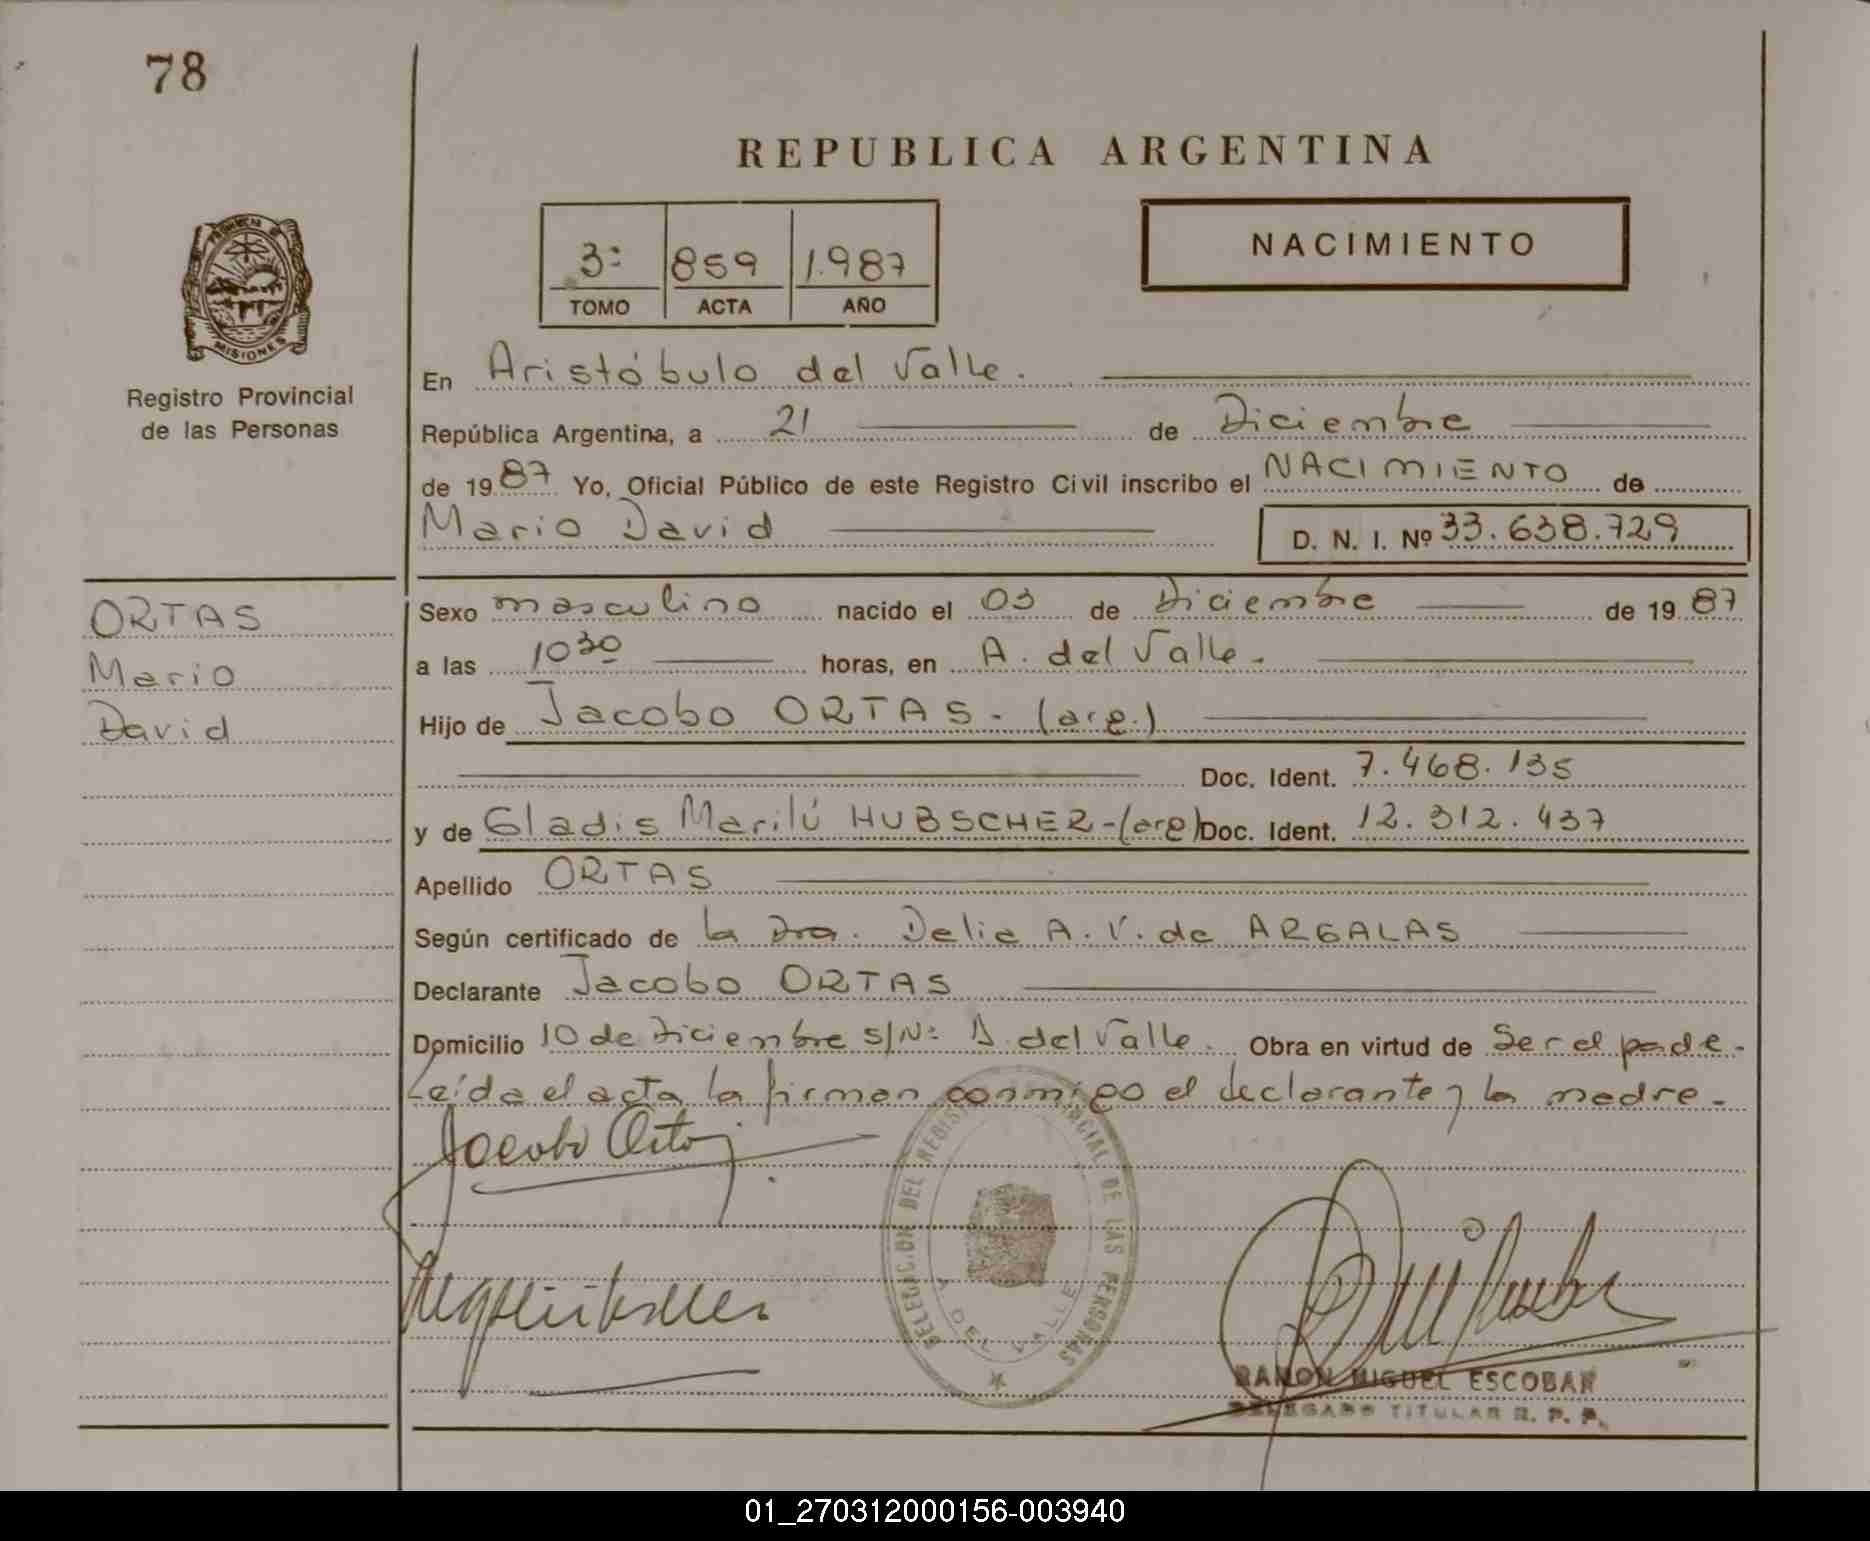 78
REPUBLICA ARGENTINA
PROVINCIA D
MISIONES
Registro Provincial
de las Personas
3º 859 1.987
TOMO ACTA AÑO
NACIMIENTO
En Aristóbulo del Valle.
República Argentina, a 21 de Diciembre
de 1987 Yo, Oficial Público de este Registro Civil inscribo el NACIMIENTO de
Mario David
D. N. I. Nº 33.638.729
ORTAS
Mario
David
Sexo masculino nacido el 03 de Diciembre de 1987
a las 10 30 horas, en A. del Valle.
Hijo de Jacobo ORTAS - (arg.)
Doc. Ident. 7.468.135
y de Gladis Marilú HUBSCHER - (arg) Doc. Ident. 12.312.437
Apellido ORTAS
Según certificado de la Dra. Delia A. V. de ARGALAS
Declarante Jacobo ORTAS
Domicilio 10 de Diciembre s/Nº A. del Valle. Obra en virtud de Ser el padre.
Leída el acta la firman conmigo el declarante y la madre.
Jacobo Ortas
DELEGACION DEL REGISTRO PROVINCIAL DE LAS PERSONAS
A DEL VALLE
RAMON MIGUEL ESCOBAR
DELEGADO TITULAR R. P. P.
01_270312000156-003940